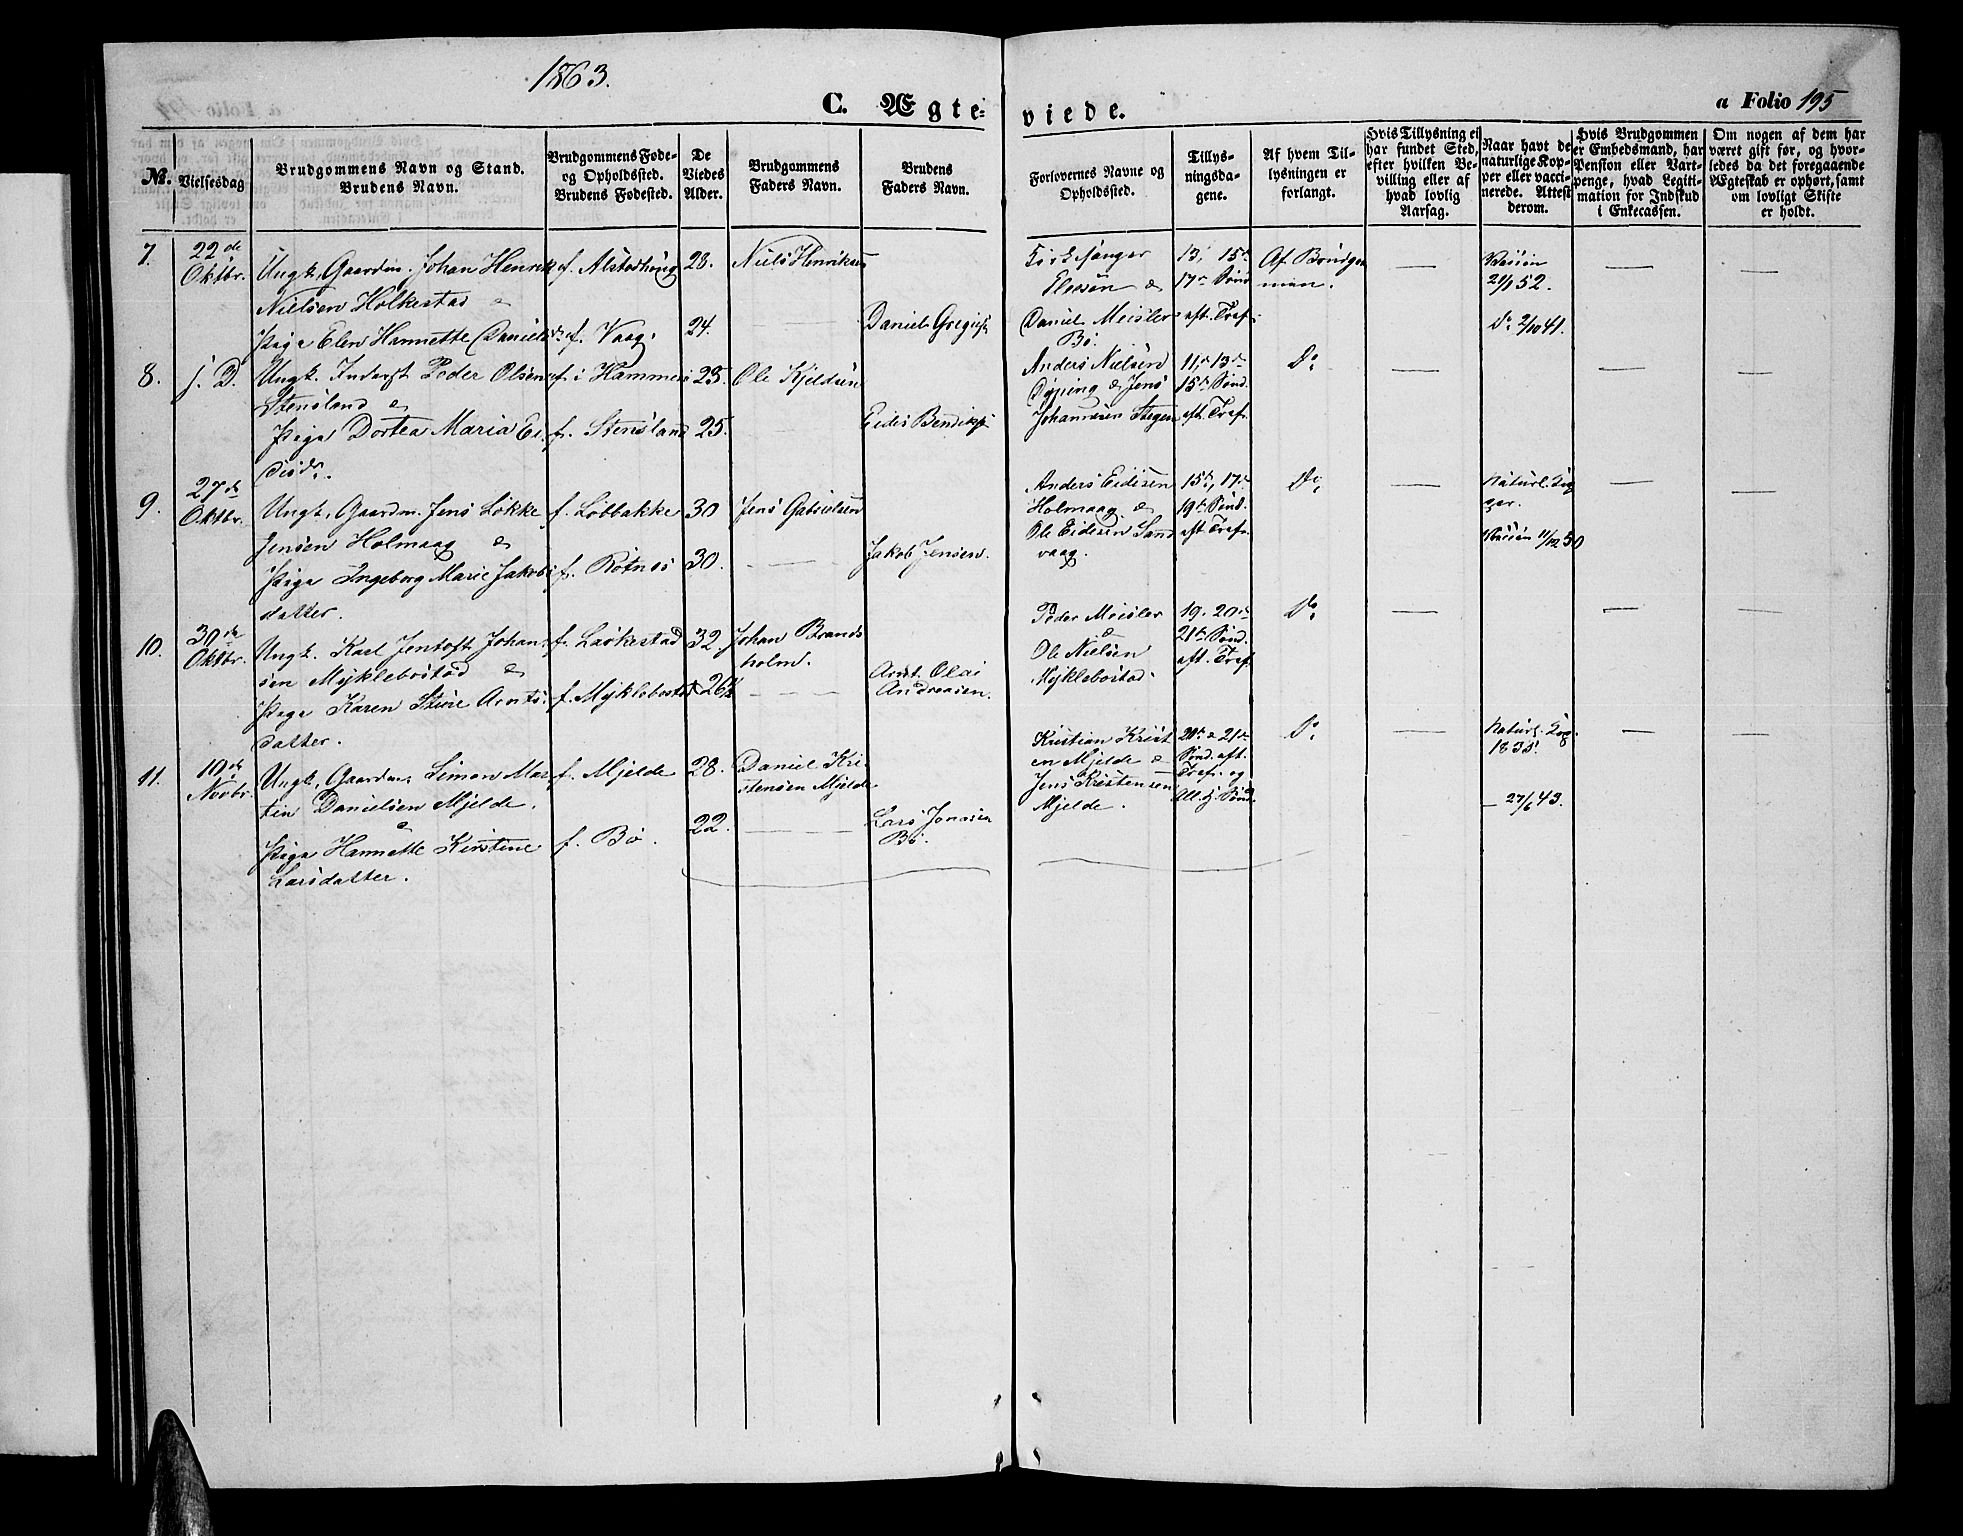 1863.
C. Ægteviede.
a Folio 195
№.
Vielsesdag
Brudgommens Navn og Stand.
Brudens Navn.
Brudgommens Føde-
og Opholdssted.
Brudens Fødested.
De
Viedes
Alder.
Brudgommens
Faders Navn.
Brudens
Faders Navn.
Forlovernes Navne og
Opholdssted.
Tillys-
ningsda-
gene.
Af hvem Til-
lysningen er
forlangt.
Hvis Tillysning ei
har fundet Sted,
efter hvilken Be-
villing eller af
hvad lovlig
Aarsag.
Naar havt de
naturlige Kop-
per eller vacci-
nerede. Attest
derom.
Hvis Brudgommen
er Embedsmand, har
Pension eller Vart-
penge, hvad Legiti-
mation for Indskud
i Enkecassen.
Om nogen af dem har
været gift før, og hvor-
ledes da det foregaaende
Ægteskab er ophørt, samt
om lovligt Skifte
er holdt.
7.
22de
Oktbr.
Ungk. Gaardm. Johan Henrik
Nielsen Holkestad &
Pige Elen Hannette Daniels
f. Alstadhoug
f. Vaag.
28.
24.
Niels Henriksen
Daniel Gregus
Kirkesanger
&
Daniel Meisler
Bø.
13, 15de
17de Sønd
eft. Tref.
Af Brudgom
men.
Vaccin
21/1 52.
Do 2/10 41.
8.
s. D.
Ungk. Inderst Peder Olsen
Stensland &
Pige Dortea Maria Ei-
disdr.
f. i Hammerø
f. Stensland
23
25.
Ole Kjeldsen
Eidis Bendiks
Anders Nielsen
Dyping & Jens
Johannesen Stegen
11, 13de
15de Sønd.
eft. Tref.
Do
9.
27de
Oktbr.
Ungk. Gaardm. Jens Løkke
Jensen Holmaag &
Pige Ingeborg Marie Jakobs
datter.
f. Løbbakke
f. Røtnes
30
30.
Jens Gabrielsen
Jakob Jensen.
Anders Eidisen
Holmaag &
Ole Eidisen Sand
vaag.
15de, 17de
19de Sønd.
eft. Tref.
Do
Naturl.
Vaccin 11/12 50
10.
30de
Oktbr.
Ungk. Karl Jentoft Johan-
sen Myklebostad &
Pige Karen Stine Arnts-
datter.
f. Laskestad
f. Myklebostad
32.
26½
Johan Brands
holm.
Arnt Olai
Andreasen.
Peder Meisler
&
Ole Nielsen
Myklebostad.
19, 20de
21de Sønd.
eft. Tref.
Do
11.
10de
Novbr.
Ungk. Gaardm. Simon Mar-
tin Danielsen Mjelde.
&
Pige Hannette Kirstine
Larsdatter.
f. Mjelde
f. Bø.
28.
22.
Daniel Kri-
stensen Mjelde
Lars Jonasen
Bø.
Kristian Krist
en Mjelde &
Jens Kristensen
Mjelde.
20de & 21de
Sønd. eft.
Tref. og
All. H. Sønd.
Do
Naturl. Kop.
1835
27/6 43.